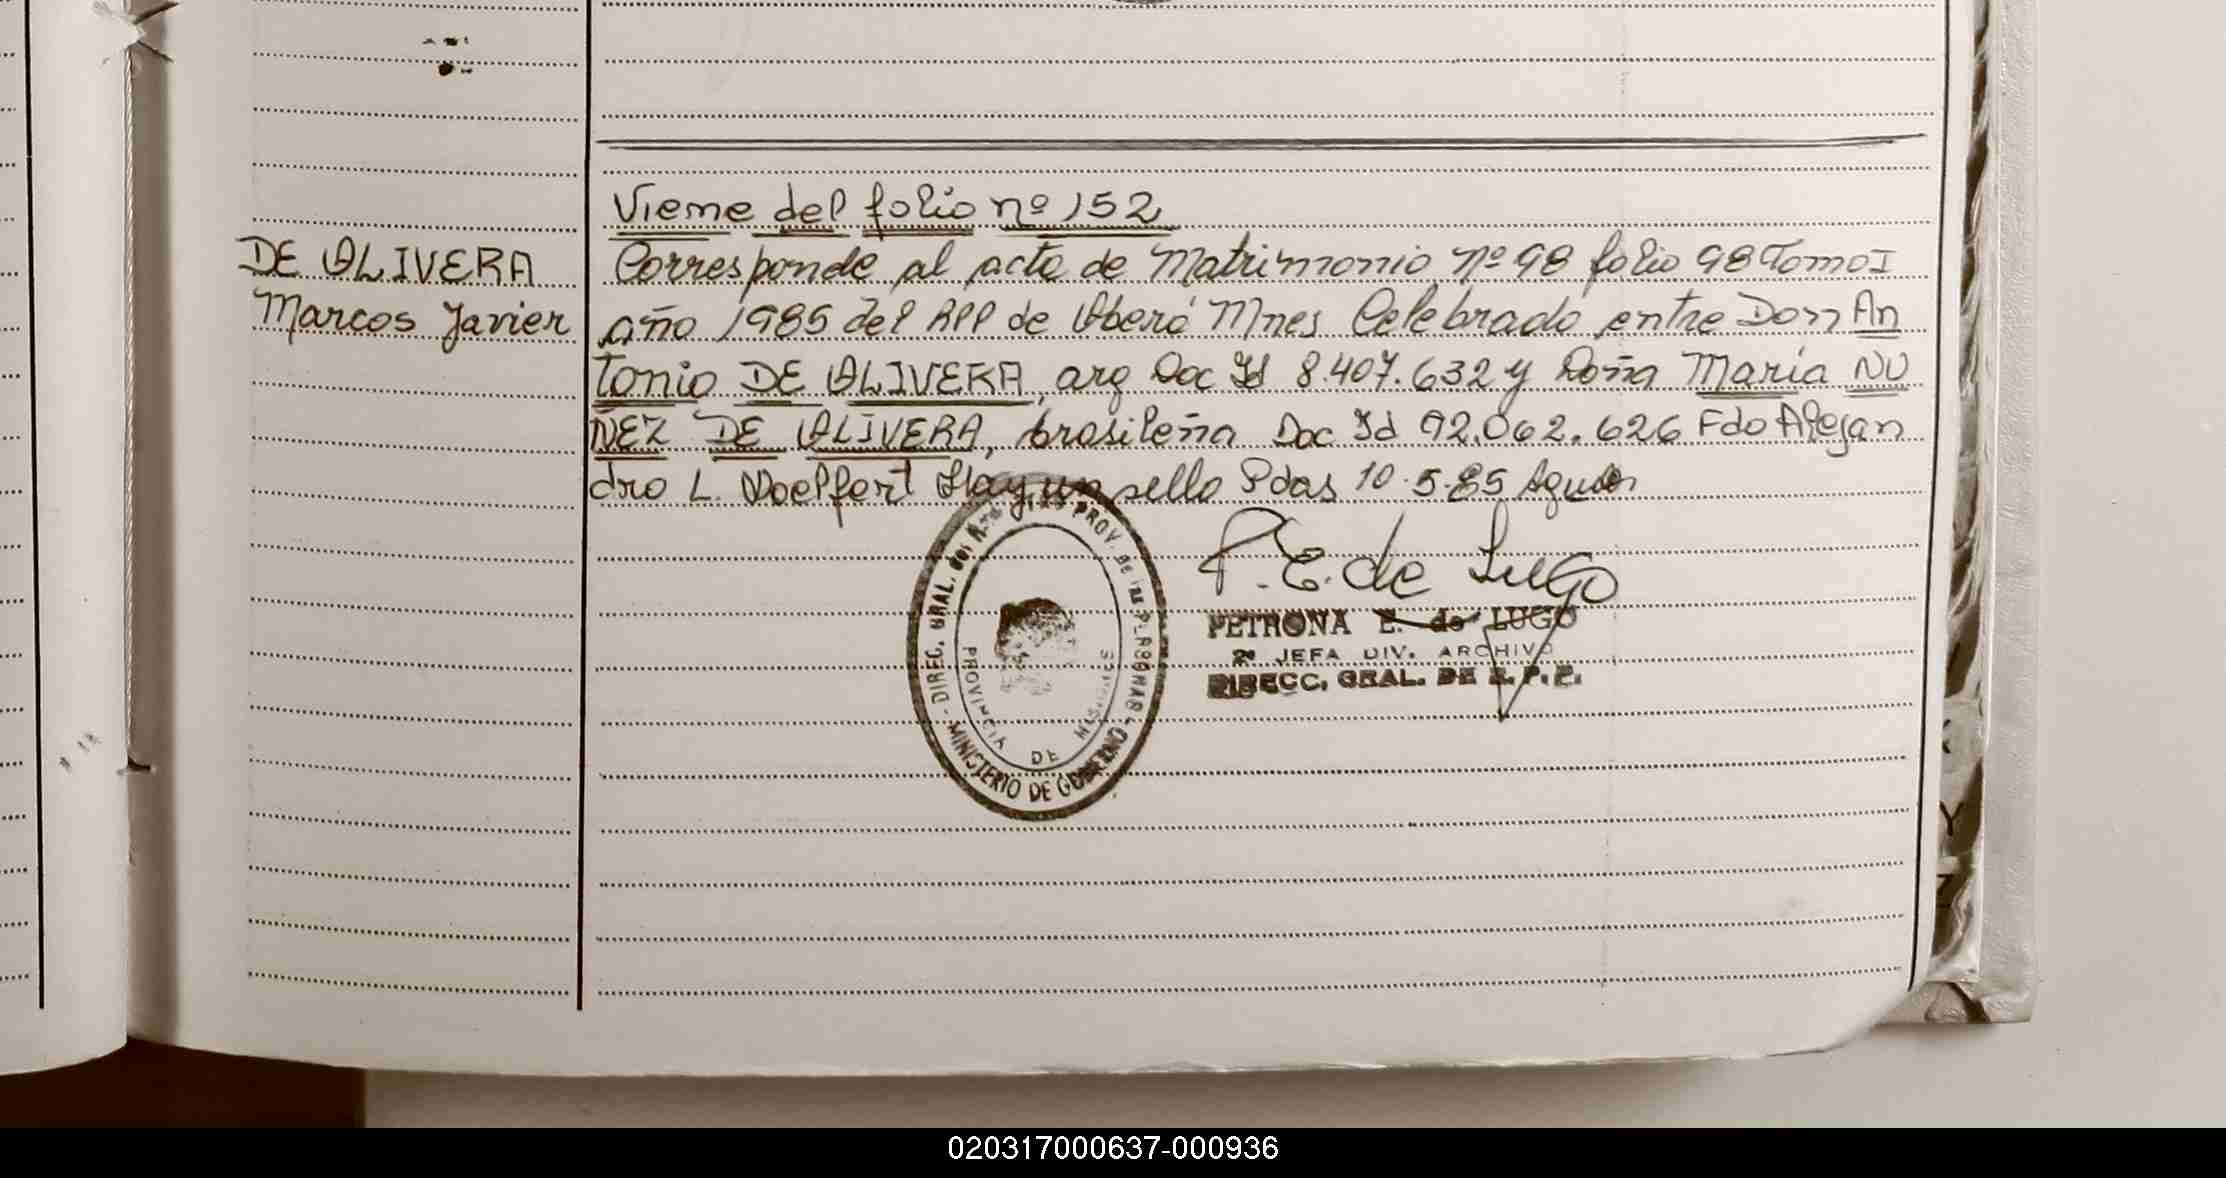 Viene del folio nº 152
DE OLIVERA
Marcos Javier
Corresponde al acta de Matrimonio nº 98 folio 98 Tomo I
año 1985 del RPP de Oberá Mnes Celebrado entre Don An
tonio DE OLIVERA, arg Doc Id 8.407.632 y Doña María NU
ÑEZ DE OLIVERA, brasileña Doc Id 92.062.626 Fdo Alejan
dro L. Doelfert Hay un sello Pdas 10.5.85
P. E. de Lugo
PETRONA E. de LUGO
2º JEFA DIV. ARCHIVO
DIRECC. GRAL. DE R. P. P.
DIREC. GRAL. del PROV. DE LAS PERSONAS
MINISTERIO DE GOBIERNO
PROVINCIA DE MISIONES
020317000637-000936